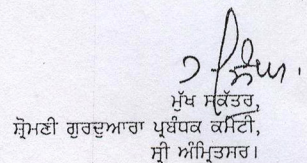 ਮੁੱਖ ਸਕੱਤਰ,
ਸ਼੍ਰੋਮਣੀ ਗੁਰਦੁਆਰਾ ਪ੍ਰਬੰਧਕ ਕਮੇਟੀ,
ਸ੍ਰੀ ਅੰਮ੍ਰਿਤਸਰ।